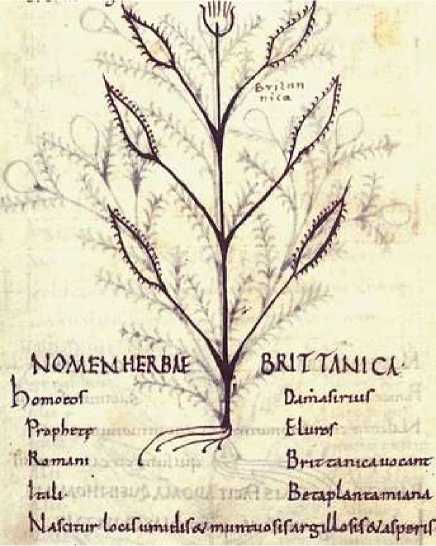 Britan
nica
NOMEN HERBAE BRITTANICA
homoeos Damasirius
Prophete Eluros
Romani Brittanica uocant
Itali Beta plantamiana
Nascitur locis umidis & muntuosis argillosis & asperis